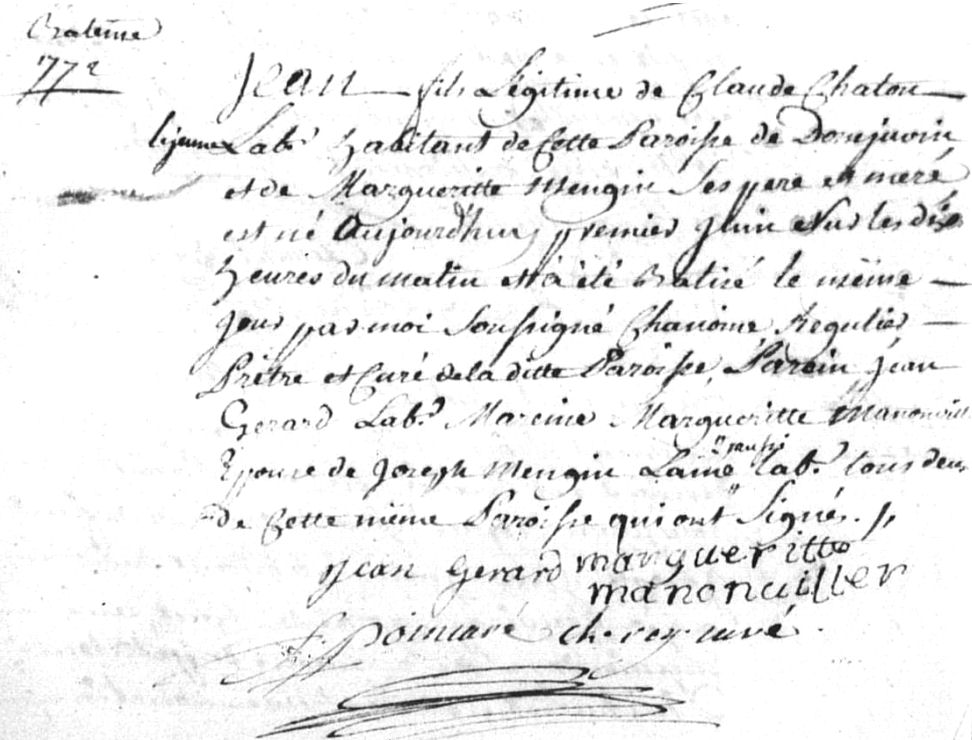 Bateme
1772
Jean fils Légitime de Claude Chaton
lejeune Labr habitant de Cette Paroisse de Domjevin
et de Margueritte Mengin Ses pere et mere
est né aujourd'huy premier Juin sur les dix
heures du matin et a été Batisé le même
Jour par moi Soussigné Chanoine Regulier
Prêtre et Curé de la ditte Paroisse, Parein Jean
Gerard Labr. Mareine Margueritte Manonviller
Epouse de Joseph Mengin Lainé aussi lab. tous deux
de Cette même Paroisse qui ont Signés.
Jean Gerard margueritte
manonuiller
ch. reg. curé.